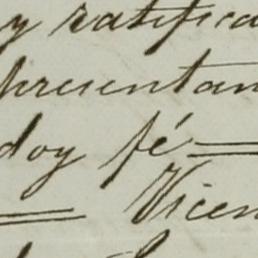 y ratifica
presentan
doy fé
Vicen